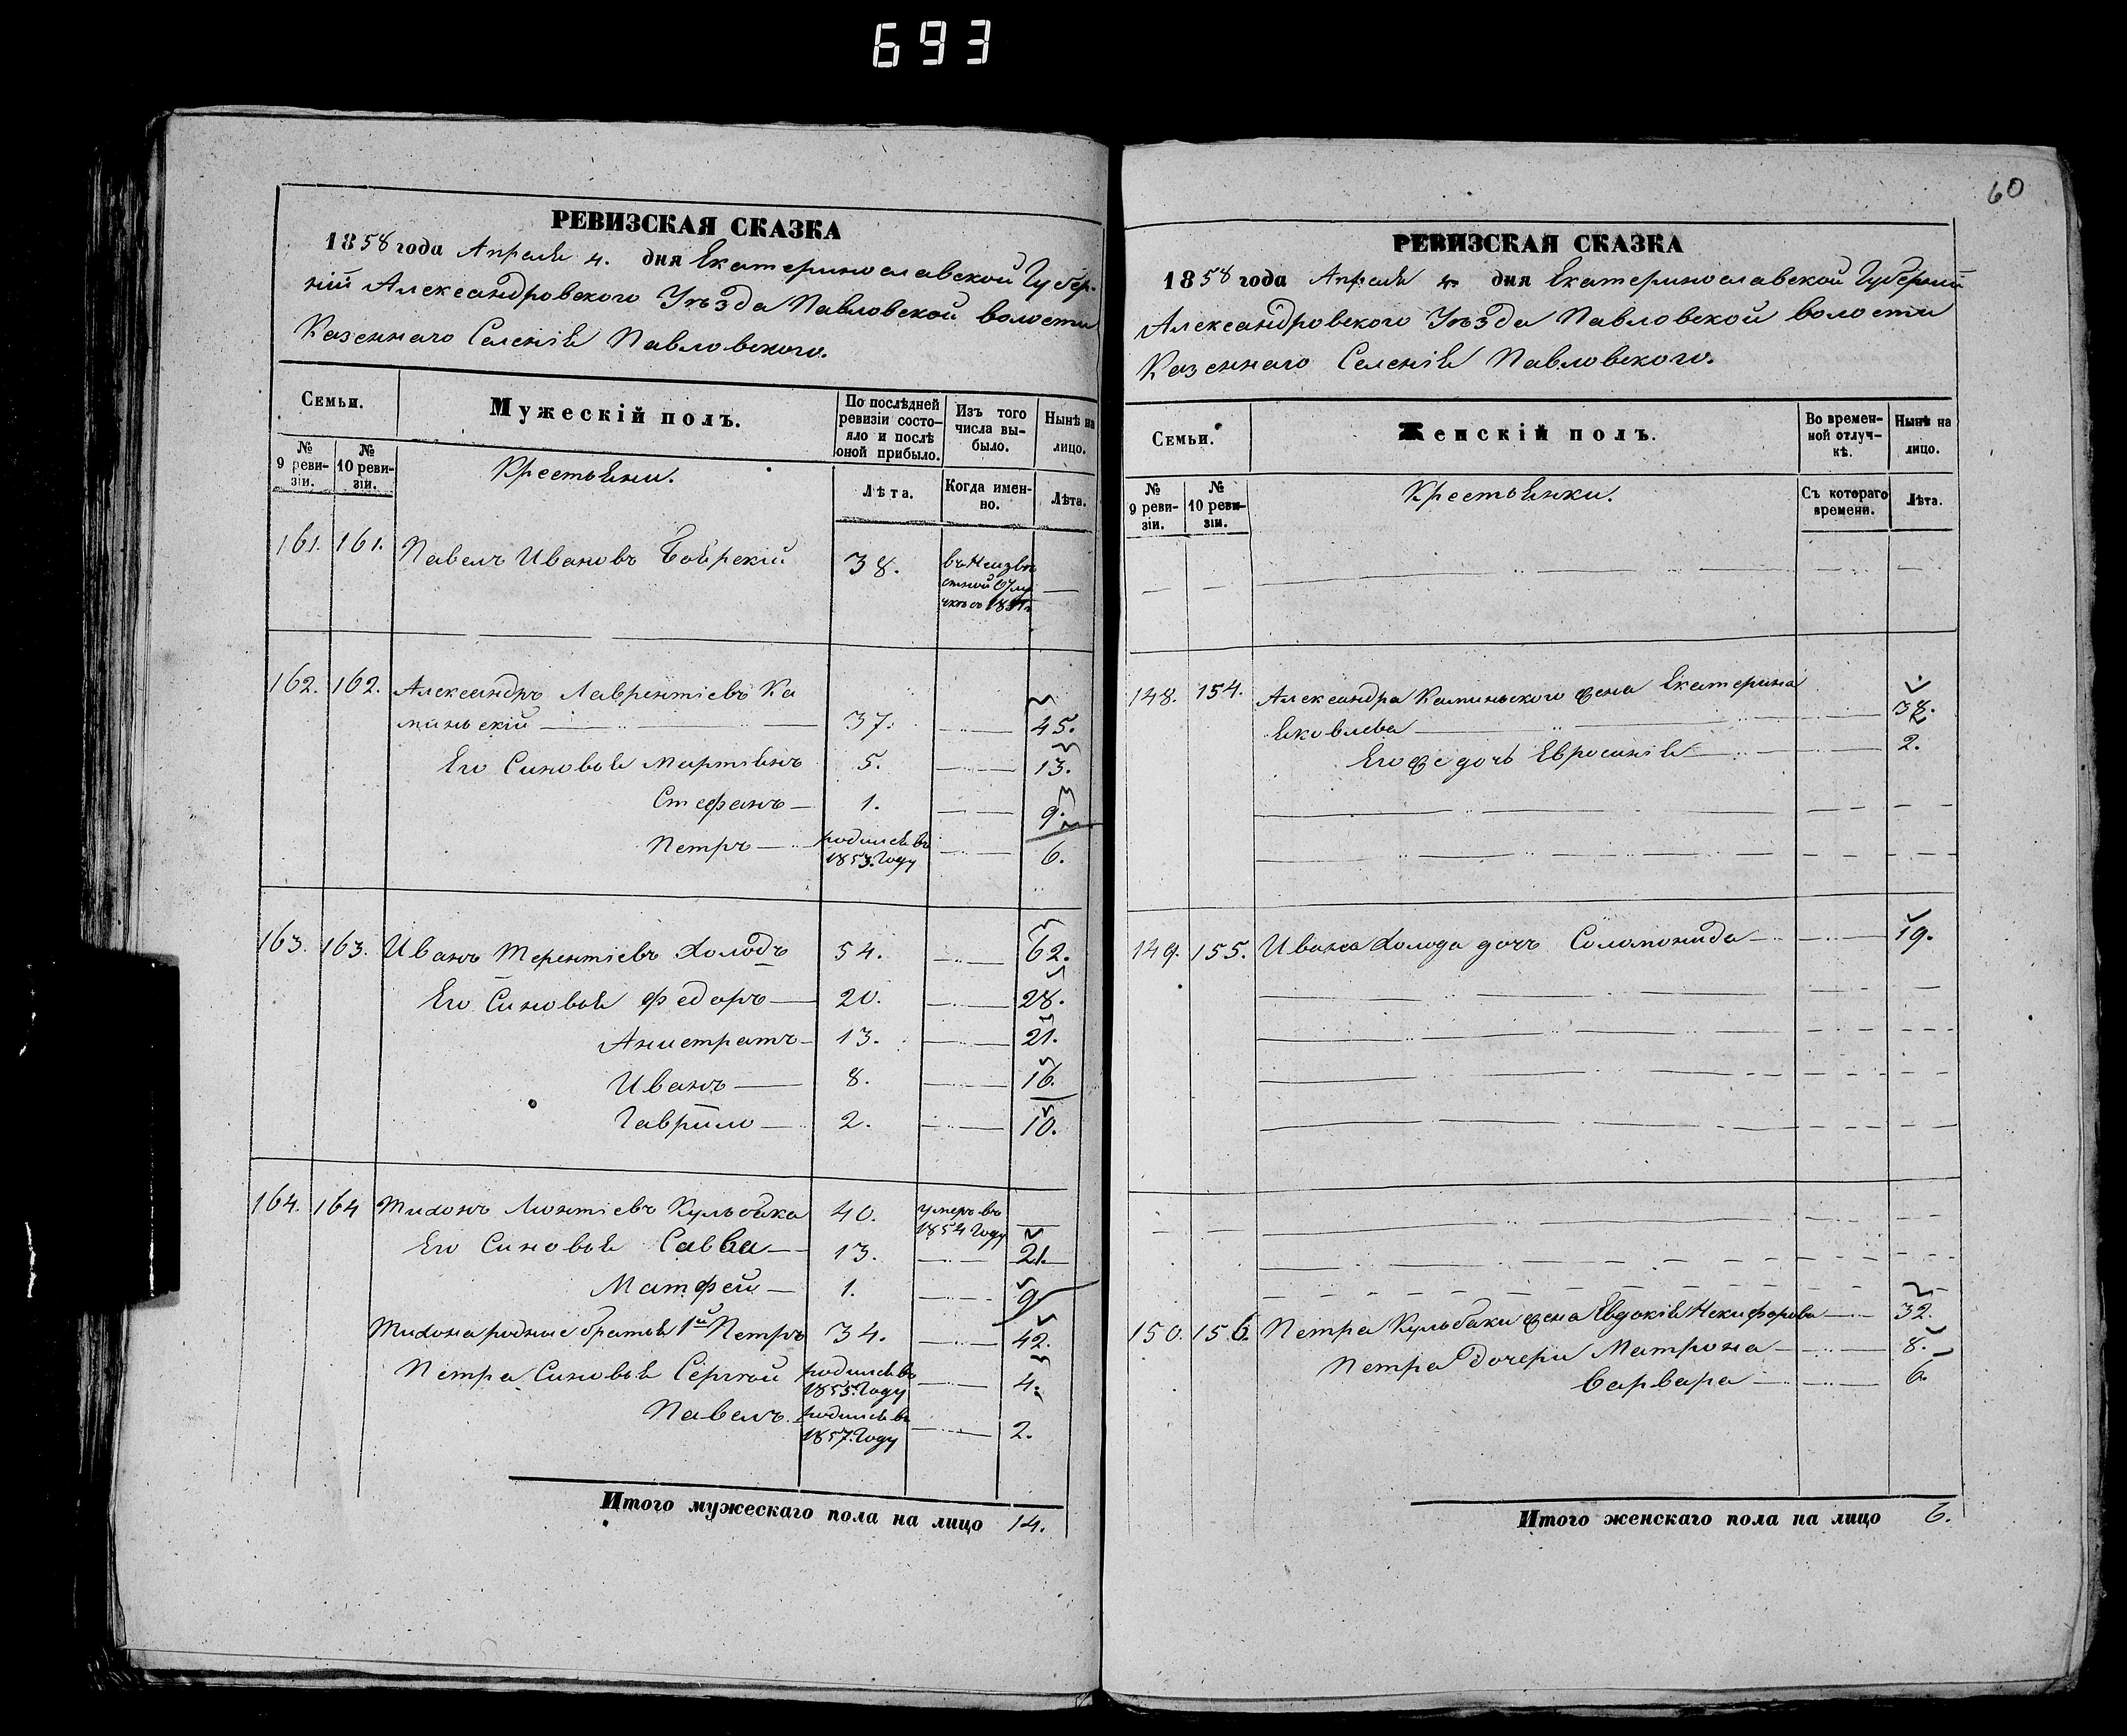 693
РЕВИЗСКАЯ СКАЗКА
1858 года Апреля 4. дня Екатеринославской Губер-
ніи Александровского Уѣзда Павловской волости
Казеннаго Селенія Павловского.
Семьи.
Мужескій полъ.
По послѣдней ревизіи состо-
яло и послѣ оной прибыло.
Изъ того числа вы-
было.
Нынѣ на лицо.
№ 9 реви-
зіи.
№ 10 реви-
зіи.
Крестьяни.
Лѣта.
Когда имен-
но.
Лѣта.
161. 161. Павелъ Ивановъ Боярскій 38. въ Неизвѣ
стной отлу
162. 162. Александръ Лаврентіевъ Ка
миньскій 37. 45.
Его Синовья Мартіянъ 5. 13.
Стефанъ 1. 9.
Петръ родился въ 6.
1853. Году
163. 163. Иванъ Терентіевъ Холодъ 54. 62.
Его Синовья Федоръ 20. 28.
Анистратъ 13. 21.
Иванъ 8. 16.
Гаврило 2. 10.
164. 164 Тихонъ Лионтіевъ Кульбака 40. умеръ въ
1854 Году
Его Синовья Савва 13. 21.
Матфей 1. 9
Тихона родние братья 1й Петръ 34. 42.
Петра Синовья Сергѣй родился въ 4.
1855. Году
Павелъ родился въ 2.
1857. Году
Итого мужескаго пола на лицо 14.
60
РЕВИЗСКАЯ СКАЗКА
1858 года Апреля 4 дня Екатеринославской Губерніи
Александровского Уѣзда Павловской волости
Казеннаго Селенія Павловского.
Семьи.
Женскій полъ.
Во времен-
ной отлуч-
кѣ.
Нынѣ на лицо.
№ 9 реви-
зіи.
№ 10 реви-
зіи.
Крестьянки.
Съ котораго времени.
Лѣта.
148. 154. Александра Каминьского жена Екатерина
Яковлева 38.
Его же дочь Евросинія 2.
149. 155. Ивана Холода дочъ Соломонида 19.
150. 156. Петра Кульбаки жена Евдокія Никифорова 32.
Петра дочери Матрона 8.
Варвара 6.
Итого женскаго пола на лицо 6.